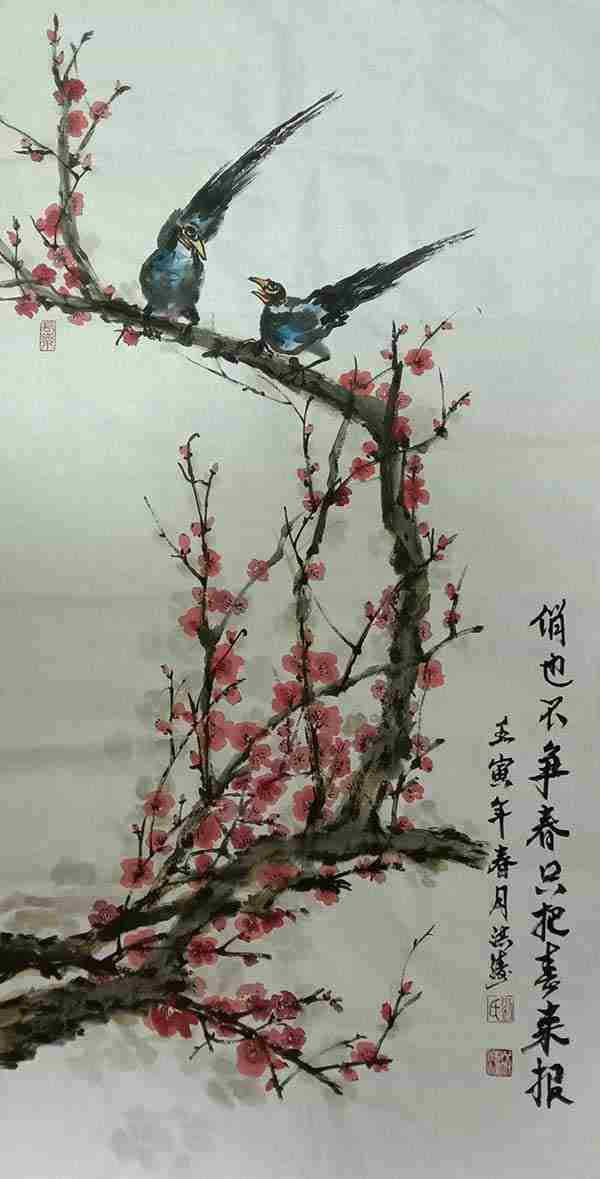 俏也不争春只把春来报
壬寅年春月洪涛